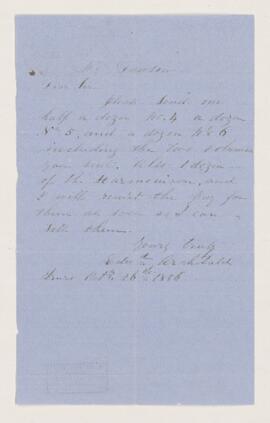 Mr. Dawson
Dear Sir
Please send me
half a dozen No. 4 a dozen
No 5, and a dozen No 6
including the two volumes
you sent. Also 1 dozen
of the Harmonicon, and
I will remit the pay for
them as soon as I can
sell them.
Yours truly
Archibald
Truro 26th 1856